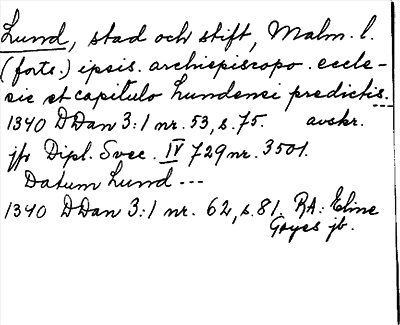 Lund, stad och stift, Malm. l.
(forts.) ipsis. archiepiscopo. eccle-
sie et capitulo Lundensi predictis.---
1340 DDan 3:1 nr. 53, s. 75. avskr.
jfr Dipl. Svec. IV 729 nr. 3501.
Datum Lund ---
1340 DDan 3:1 nr. 62, s. 81. RA: Eline
Goyes jb.